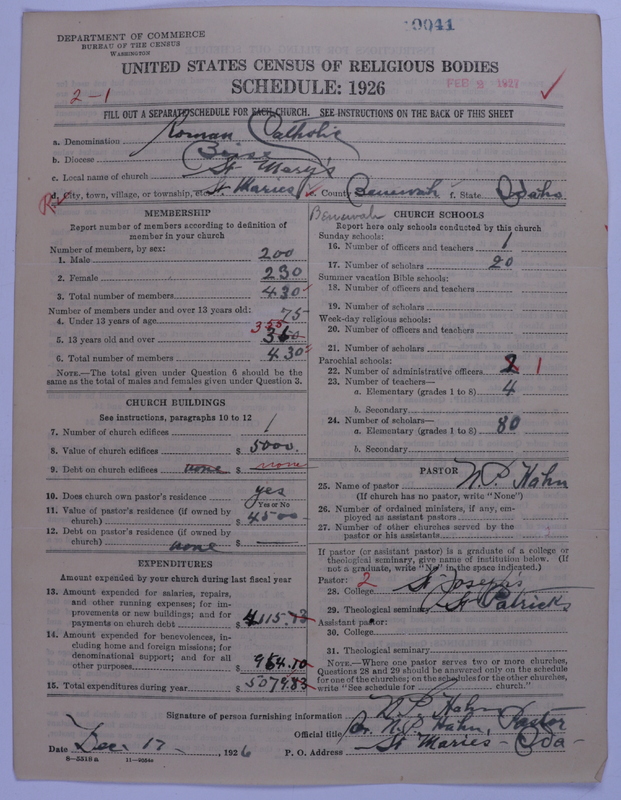 0041
DEPARTMENT OF COMMERCE
BUREAU OF THE CENSUS
WASHINGTON
UNITED STATES CENSUS OF RELIGIOUS BODIES
SCHEDULE: 1926
FEB 2 1927
2-1
FILL OUT A SEPARATE SCHEDULE FOR EACH CHURCH. SEE INSTRUCTIONS ON THE BACK OF THIS SHEET
a. Denomination Roman Catholic
b. Diocese Boise
c. Local name of church St Mary's
d. City, town, village, or township, etc. St Maries e. County Benewah f. State Idaho
Benewah
MEMBERSHIP
Report number of members according to definition of
member in your church
Number of members, by sex:
1. Male 200
2. Female 230
3. Total number of members 430
Number of members under and over 13 years old:
4. Under 13 years of age 75
355
5. 13 years old and over 360
6. Total number of members 430
NOTE.—The total given under Question 6 should be the
same as the total of males and females given under Question 3.
CHURCH BUILDINGS
See instructions, paragraphs 10 to 12
7. Number of church edifices 1
8. Value of church edifices $ 5000.
9. Debt on church edifices none $ none
10. Does church own pastor's residence yes
Yes or No
11. Value of pastor's residence (if owned by
church) $ 4500
12. Debt on pastor's residence (if owned by
church) none $
EXPENDITURES
Amount expended by your church during last fiscal year
13. Amount expended for salaries, repairs,
and other running expenses; for im-
provements or new buildings; and for
payments on church debt $ 4115.13
14. Amount expended for benevolences, in-
cluding home and foreign missions; for
denominational support; and for all
other purposes $ 964.70
15. Total expenditures during year $ 5079.83
CHURCH SCHOOLS
Report here only schools conducted by this church
Sunday schools:
16. Number of officers and teachers 1
17. Number of scholars 20
Summer vacation Bible schools:
18. Number of officers and teachers
19. Number of scholars
Week-day religious schools:
20. Number of officers and teachers
21. Number of scholars
Parochial schools:
22. Number of administrative officers 2 1
23. Number of teachers—
a. Elementary (grades 1 to 8) 4
b. Secondary
24. Number of scholars—
a. Elementary (grades 1 to 8) 80
b. Secondary
PASTOR
25. Name of pastor N.P. Hahn
(If church has no pastor, write "None")
26. Number of ordained ministers, if any, em-
ployed as assistant pastors
27. Number of other churches served by the
pastor or his assistants
If pastor (or assistant pastor) is a graduate of a college or
theological seminary, give name of institution below. (If
not a graduate, write "No" in the space indicated.)
Pastor: 2
28. College St Joseph's
29. Theological seminary St Patricks
Assistant pastor:
30. College
31. Theological seminary
NOTE.—Where one pastor serves two or more churches,
Questions 28 and 29 should be answered only on the schedule
for one of the churches; on the schedules for the other churches,
write "See schedule for church."
Signature of person furnishing information N.P. Hahn
Official title Rev. N.P. Hahn, Pastor
Date Dec 17 , 1926 P. O. Address St Maries - Ida -
8-5318 a 11-9554